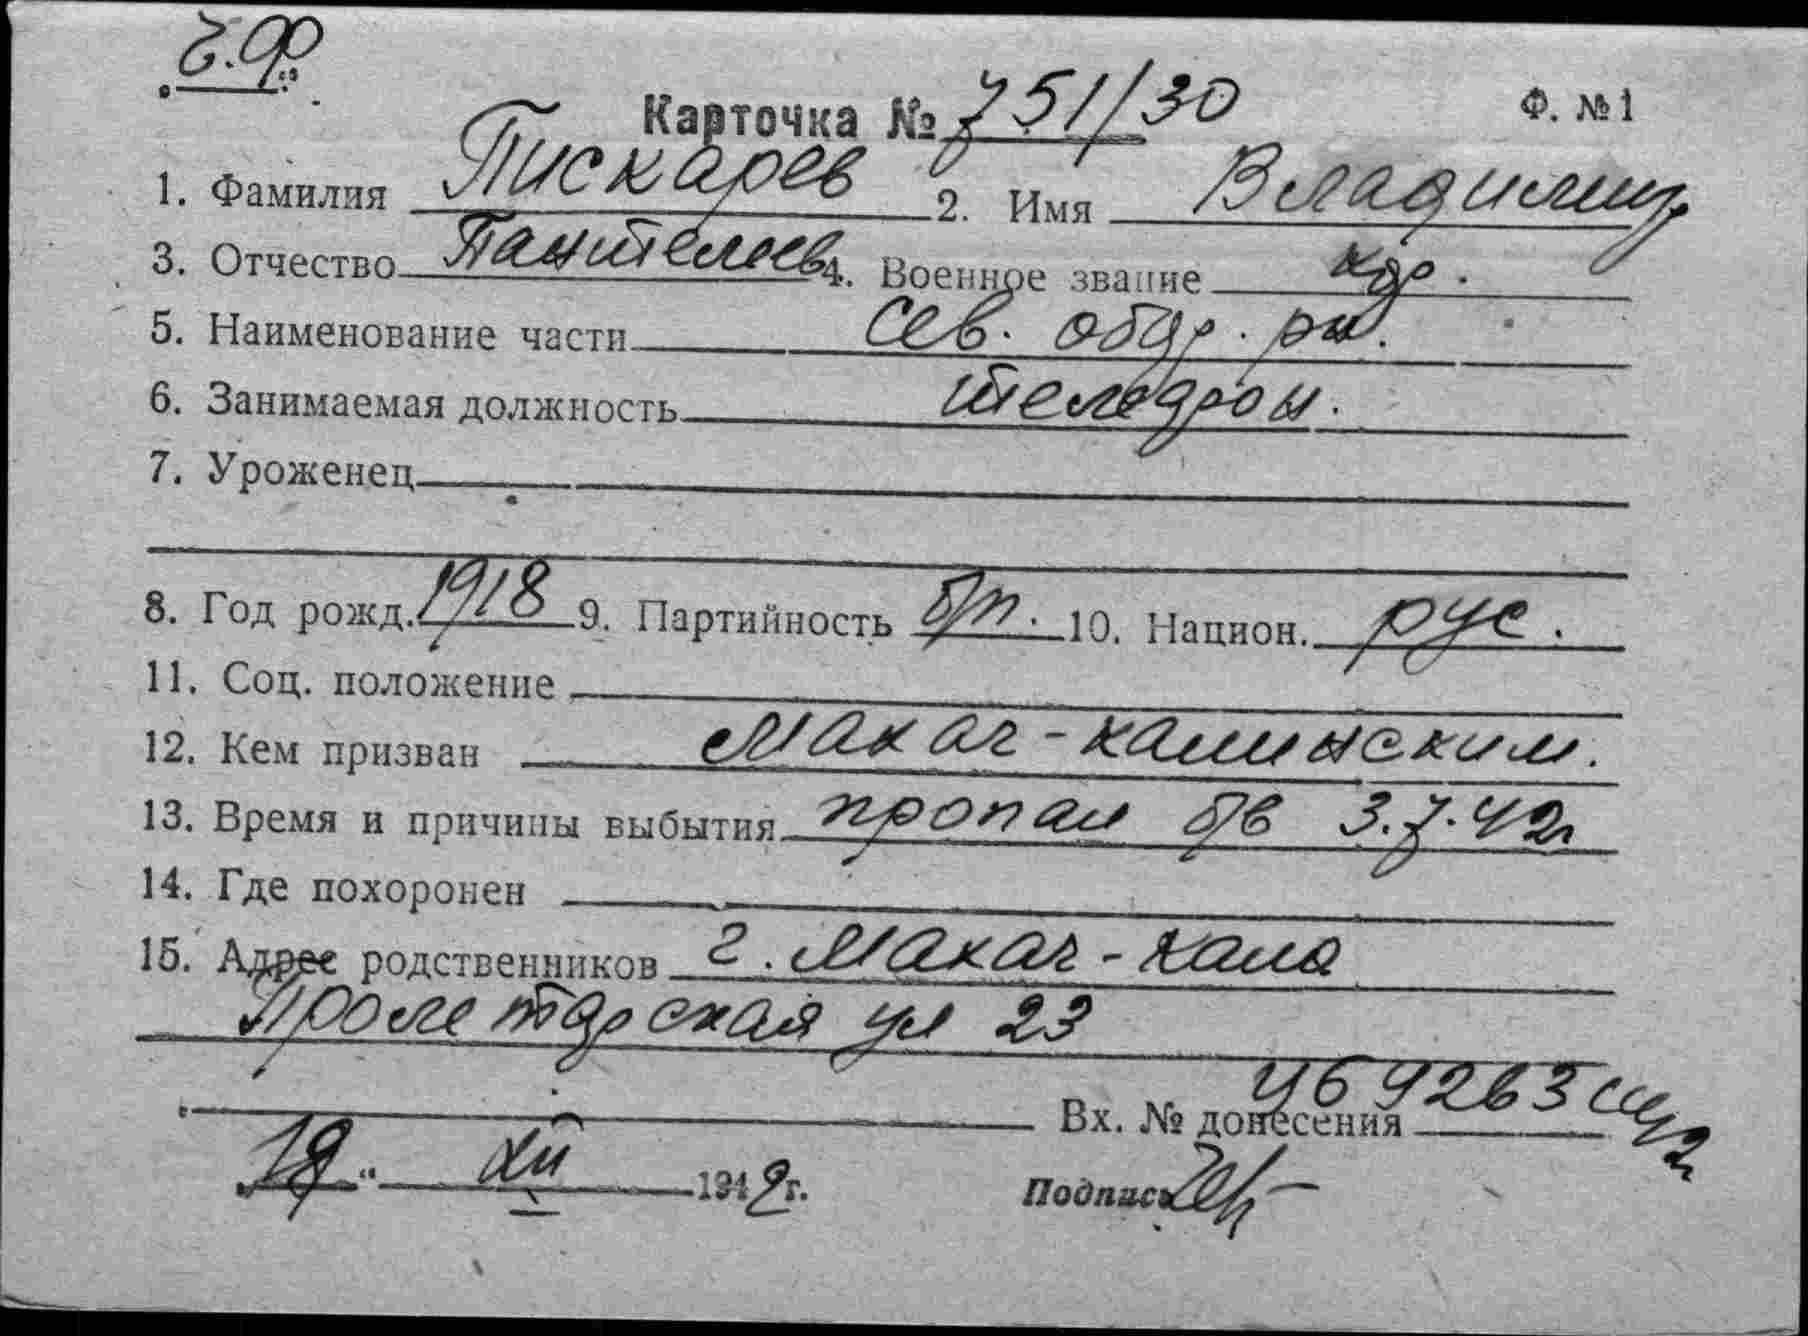 Ч.Ф.
Карточка № 751/30 Ф. № 1
1. Фамилия Пискарев 2. Имя Владимир
3. Отчество Пантелеев 4. Военное звание кр.
5. Наименование части Сев. обор. рн.
6. Занимаемая должность телефон.
7. Уроженец
8. Год рожд. 1918 9. Партийность б/п. 10. Национ. рус.
11. Соц. положение
12. Кем призван Махач-калинским.
13. Время и причины выбытия пропал б/в 3.7.42г
14. Где похоронен
15. Адрес родственников г. Махач-кала
Пролетарская ул 23
Вх. № донесения
XII 1942г. Подпись